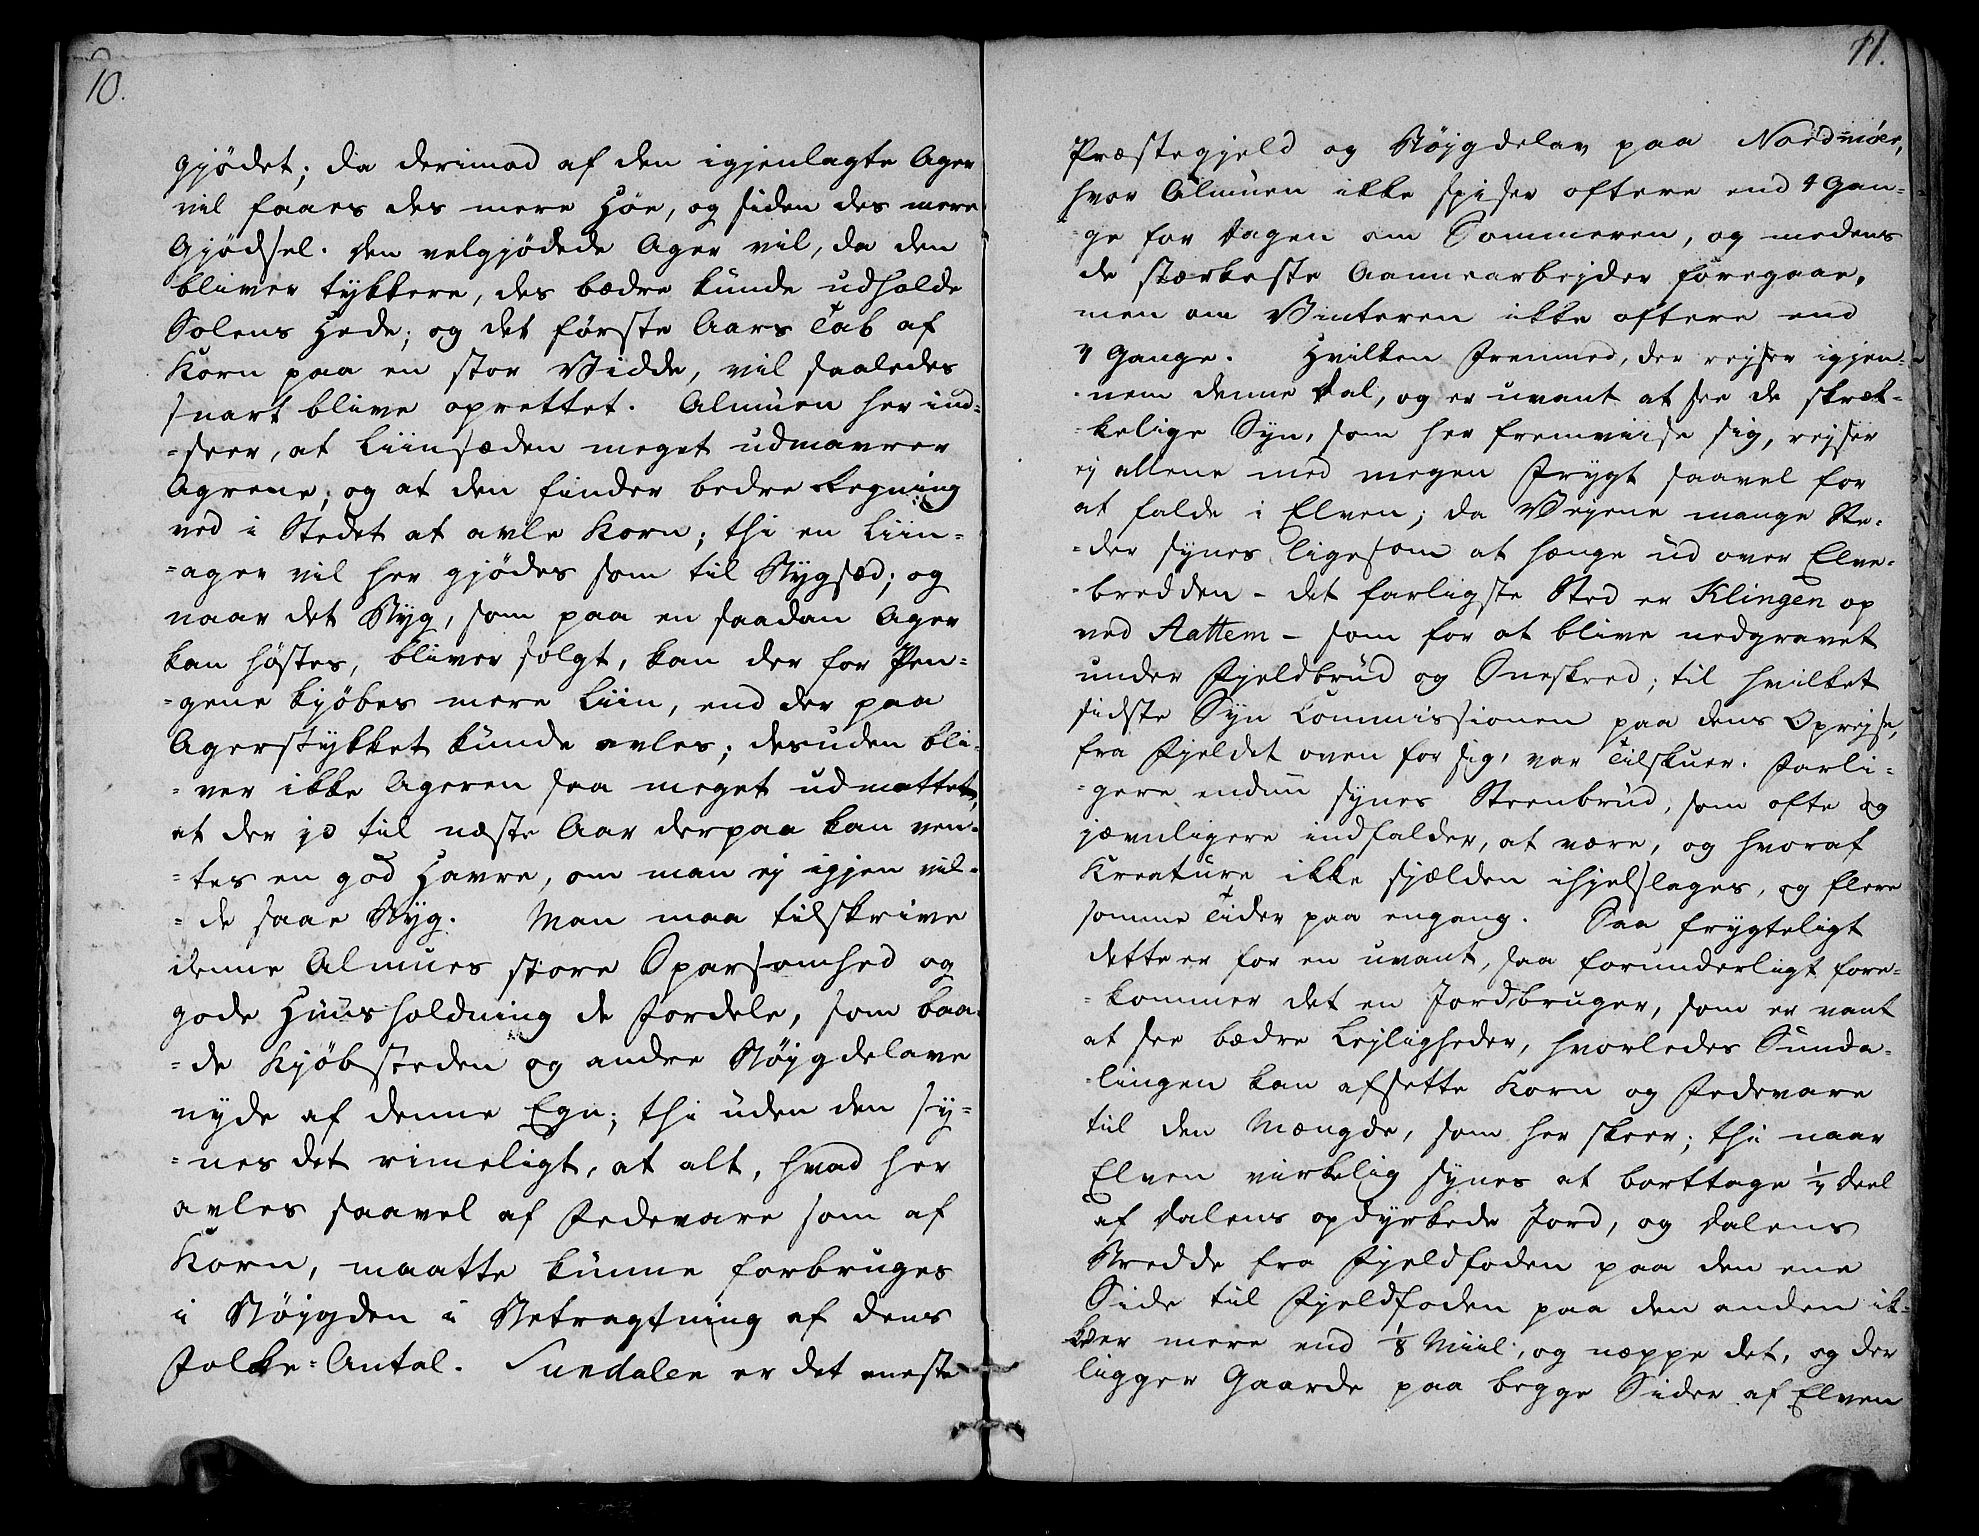 10.
gjødet; da derimod af den igjenlagte Ager
vil faaes des mere Høe, og siden des mere
Gjødsel. Den velgjødede Ager vil, da den
bliver tykkere, des bædre kunde udholde
Solens Hede; og det første Aars Tab af
Korn paa en stor Vidde, vil saaledes
snart blive oprettet. Almuen her ind-
=seer, at Liinsæden meget udmavrer
Agrene; og at den finder bedre Regning
ved i Stedet at avle Korn; thi en Liin=
=ager vil her gjødes som til Bygsæd; og
naar det Byg, som paa en saadan Ager
kan høstes, bliver solgt, kan der for Pen=
=gene kjøbes mere Liin, end der paa
Agerstykket kunde avles; desuden bli-
=ver ikke Ageren saa meget udmattet,
at der jo til næste Aar derpaa kan ven-
=tes en god Havre, om man ej igjen vil-
=de saae Byg. Man maa tilskrive
denne Almues store Sparsomhed og
gode Huusholdning de Fordele, som baa-
=de Kjøbsteden og andre Bøjgdelave
nyde af denne Egn; thi uden den sy=
=nes det rimeligt, at alt, hvad her
avles saavel af Fedevare som af
Korn, maatte kunne forbruges
i Bøjgden i Betragtning af dens
Folke=Antal. Sundalen er det eneste
11.
Præstegjeld og Bøjgdelav paa Nordmöer,
hvor Almuen ikke spiser oftere end 4 Gan-
=ge for Dagen om Sommeren, og medens
de stærkeste Aannearbejder foregaae,
men om Vinteren ikke oftere end
3 Gange. Hvilken Fremmed, der rejser igjen-
=nem denne Dal, og er uvant at see de skræk-
=kelige Syn, som her fremviise sig, rejser
ej allene med megen Frygt saavel for
at falde i Elven; da Vejene mange Ste-
=der synes ligesom at hænge ud over Elve-
=bredden - det farligste Sted er Klingen op
ved Aattem - som for at blive nedgravet
under Fjeldbrud og Sneskred; til hvilket
sidste Syn Commissionen paa dens Oprejse,
fra Fjeldet oven for sig, var Tilskuer. Farli-
=gere endnu synes Steenbrud, som ofte og
jævnligere indfalder, at være, og hvoraf
Kreature ikke sjælden ihjelslages, og flere
somme Tider paa engang. Saa frygteligt
dette er for en uvant, saa forunderligt fore-
=kommer det en Jordbruger, som er vant
at see bædre Lejligheder, hvorledes Sunda-
=lingen kan afsette Korn og Fedevare
til den Mængde, som her skeer; thi naar
Elven virkelig synes at borttage 1/4 Deel
af Dalens opdyrkede Jord, og Dalens
Bredde fra Fjeldfoden paa den ene
Side til Fjeldfoden paa den anden ik-
ke er mere end 1/8 Miil, og neppe det, og der
ligger Gaarde paa begge Sider af Elven